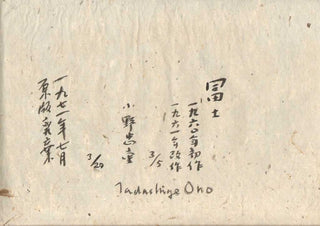 冨士
一九六〇年初作
一九六一年改作
3/5
小野忠重
3/20
一九七一年七月
原版
Tadashige Ono